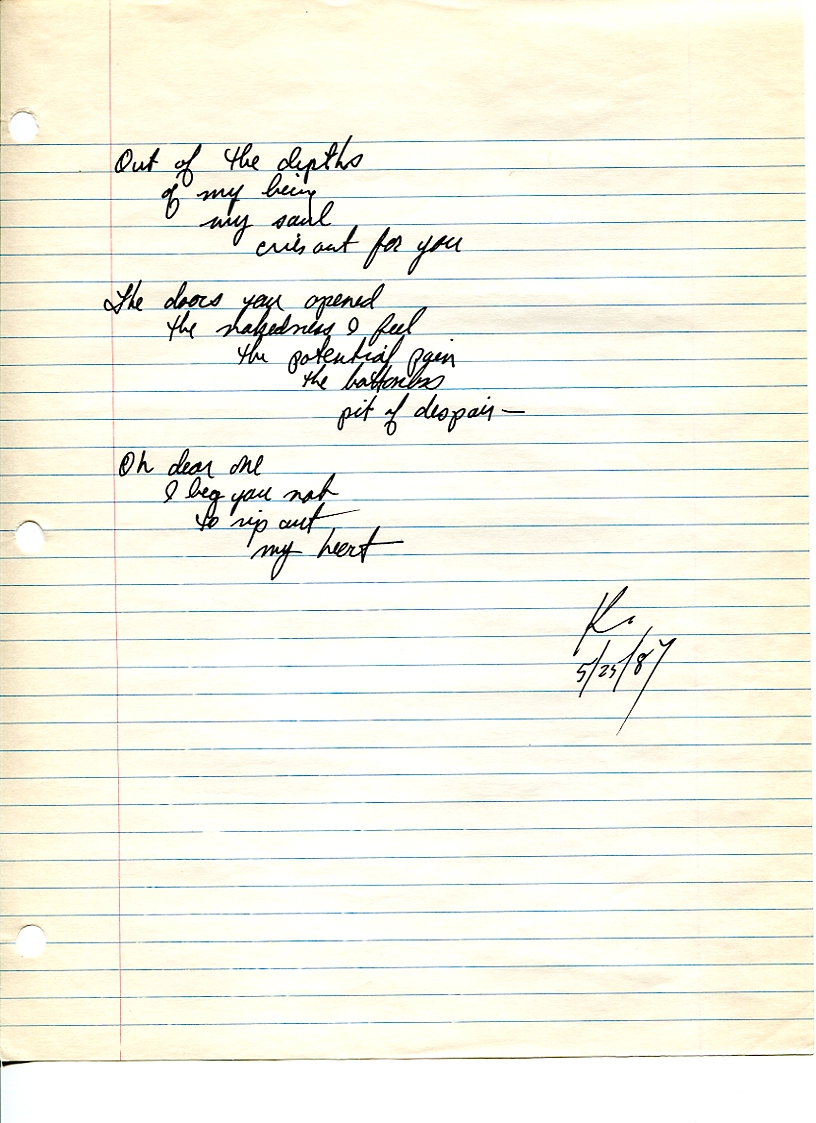 Out of the depths
of my being
my soul
cries out for you
The doors you opened
the nakedness I feel
the potential pain
the bottomless
pit of despair —
Oh dear one
I beg you not
to rip out
my heart
K.
5/25/87